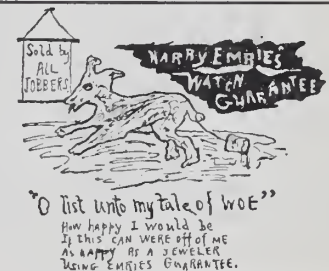 Sold by
ALL
JOBBERS
HARRY EMRIES
WATCH
GUARANTEE
"O list unto my tale of WOE"
How happy I would be
If this CAN WERE off of ME
AS HAPPY AS A JEWELER
USING EMRIES GUARANTEE.